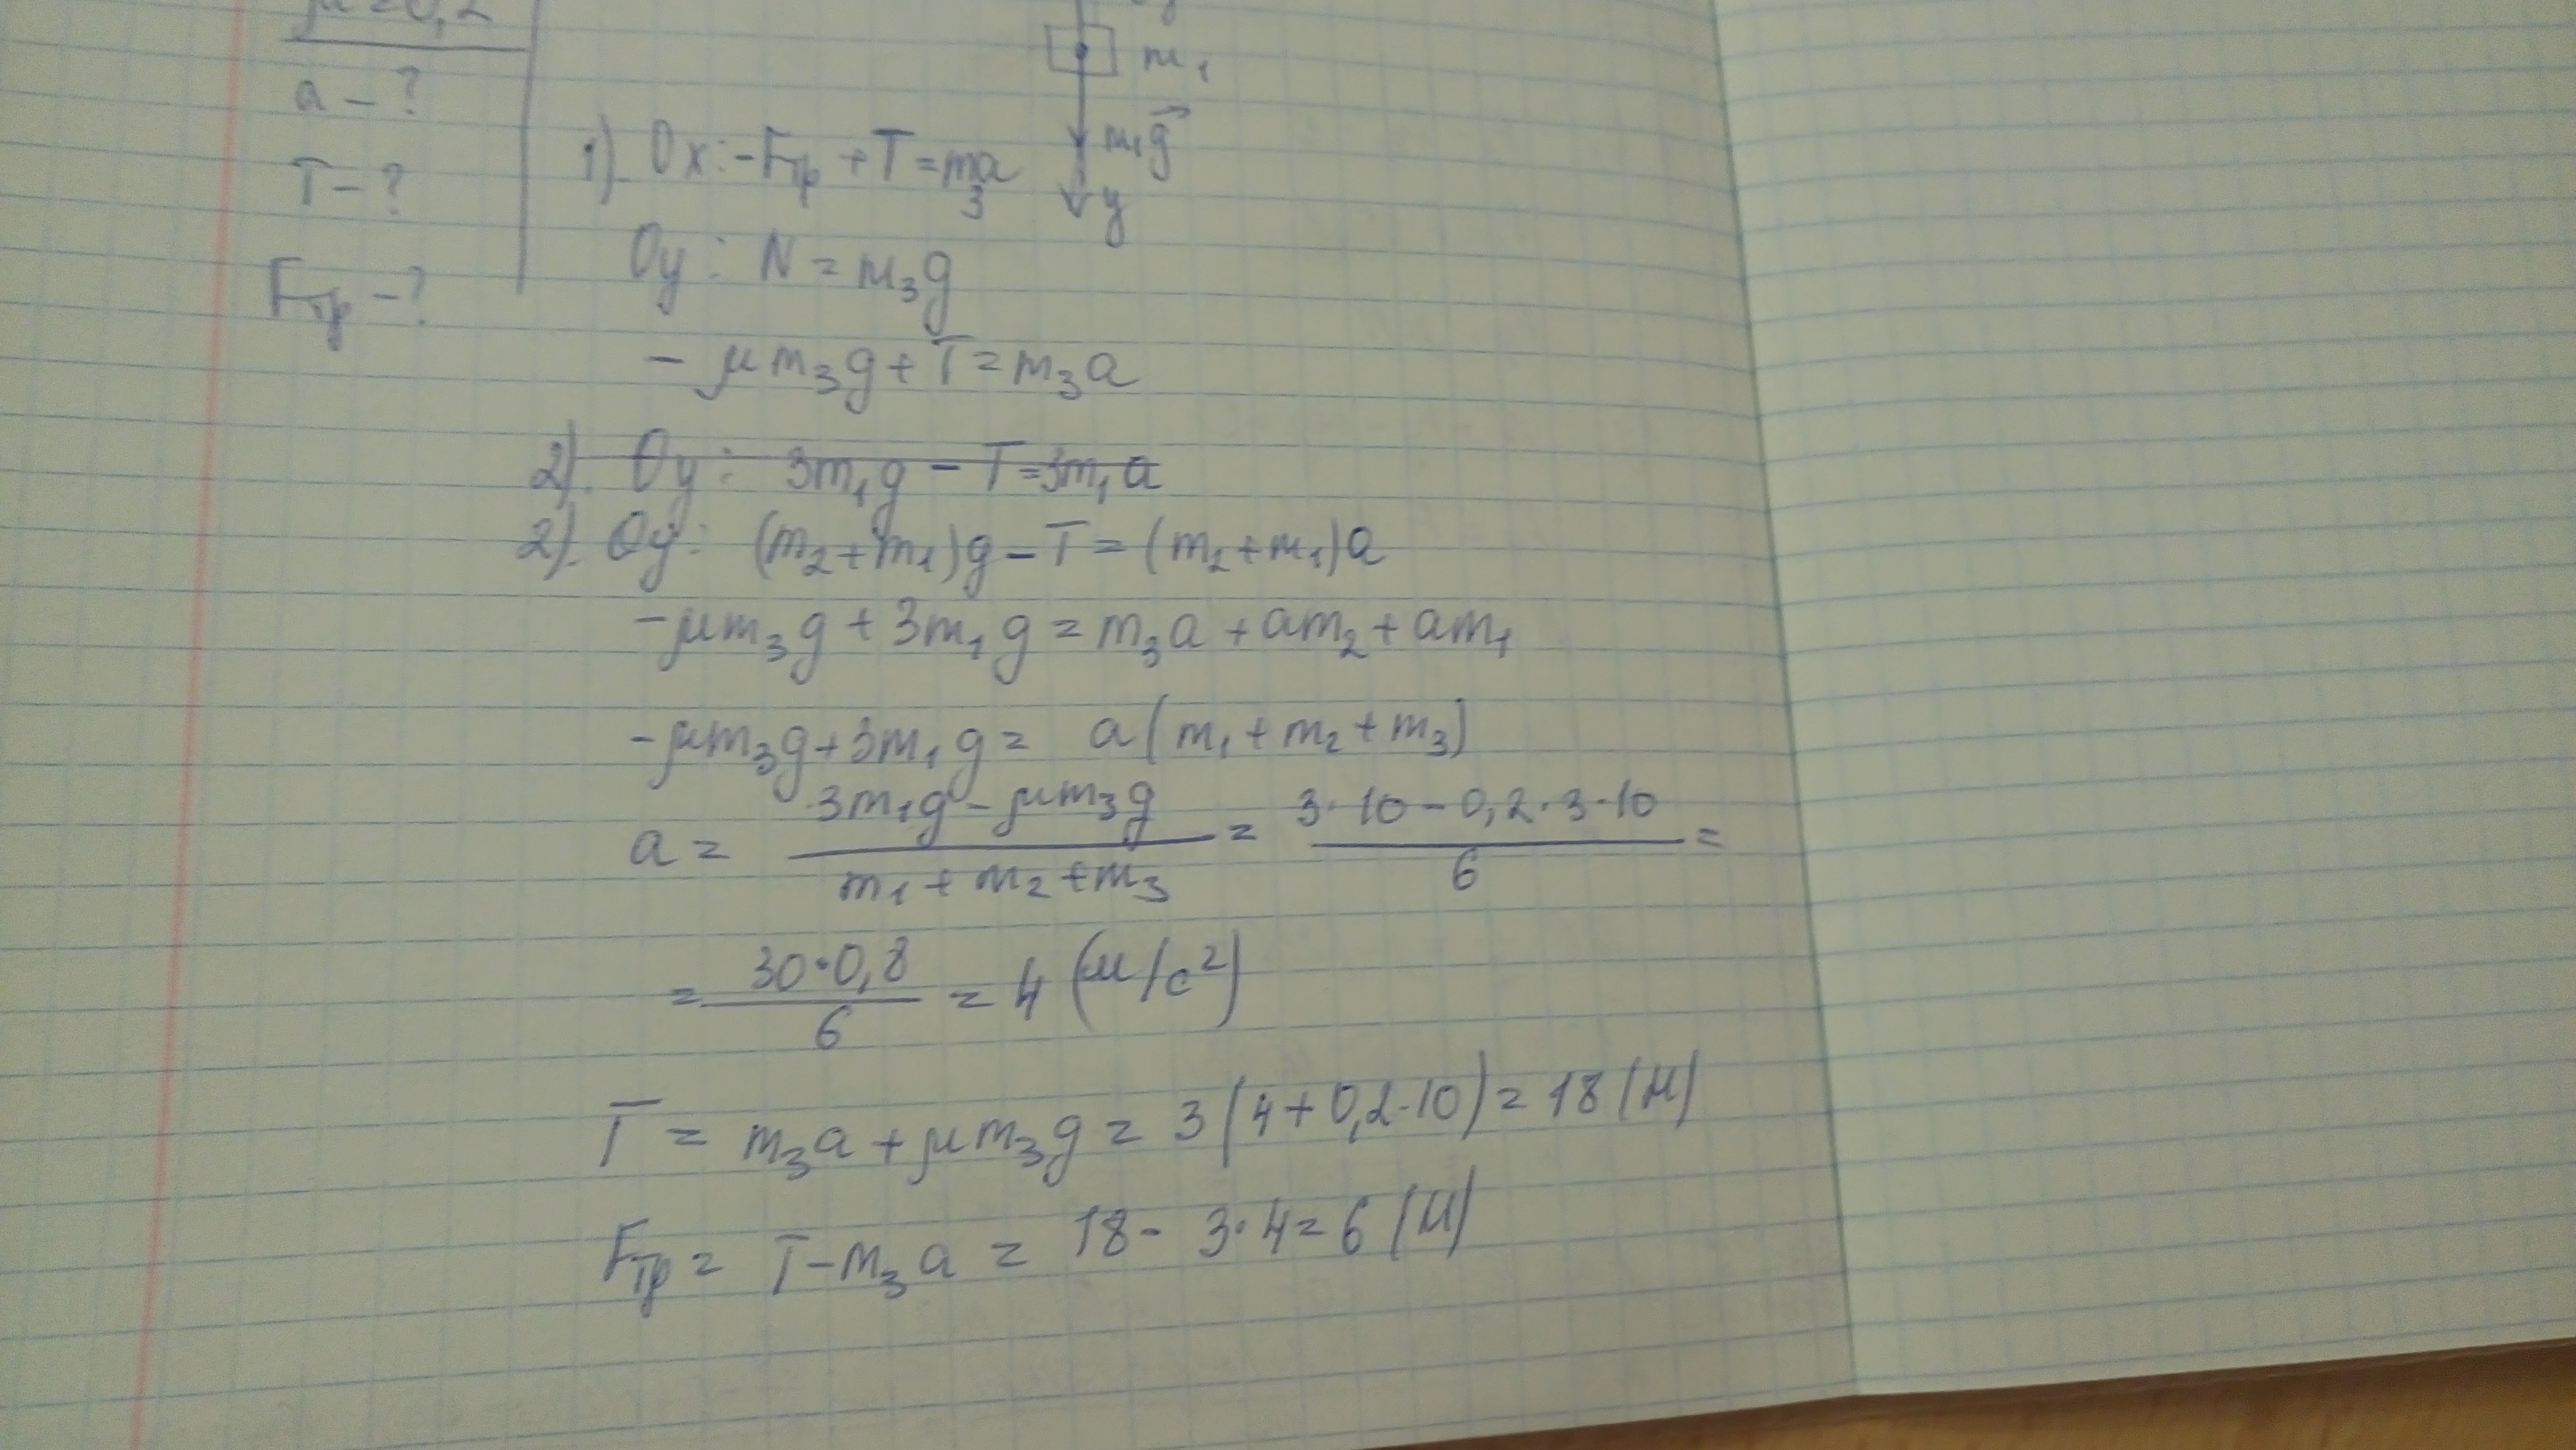 μ = 0,2
a - ?
T - ?
Fтр - ?
m₁
m₁g⃗
y
1). Ox: -Fтр + T = m₃a
Oy: N = m₃g
- μm₃g + T = m₃a
2). Oy: 3m₁g - T = 3m₁a
2). Oy: (m₂+m₁)g - T = (m₂+m₁)a
-μm₃g + 3m₁g = m₃a + am₂ + am₁
-μm₃g + 3m₁g = a(m₁ + m₂ + m₃)
a = (3m₁g - μm₃g)/(m₁ + m₂ + m₃) = (3·10 - 0,2·3·10)/6 =
= (30·0,8)/6 = 4 (м/с²)
T = m₃a + μm₃g = 3(4+0,2·10) = 18 (Н)
Fтр = T - m₃a = 18 - 3·4 = 6 (Н)